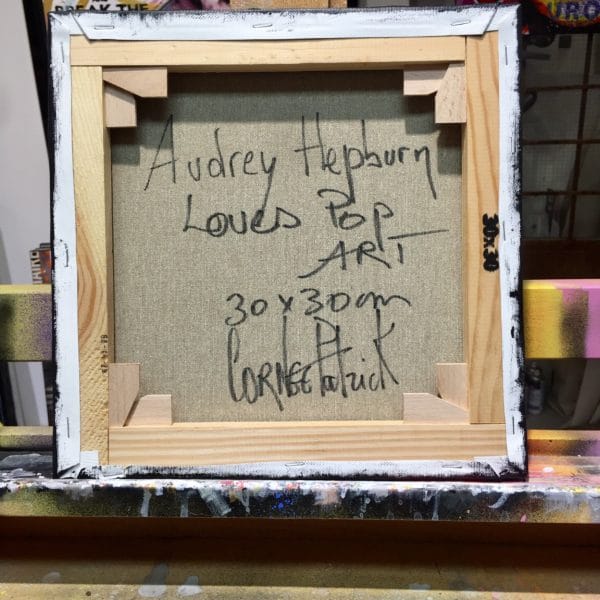 BREAK THE
Audrey Hepburn
Loves Pop
ART
30 x 30 cm
CORNEE Patrick
30x30